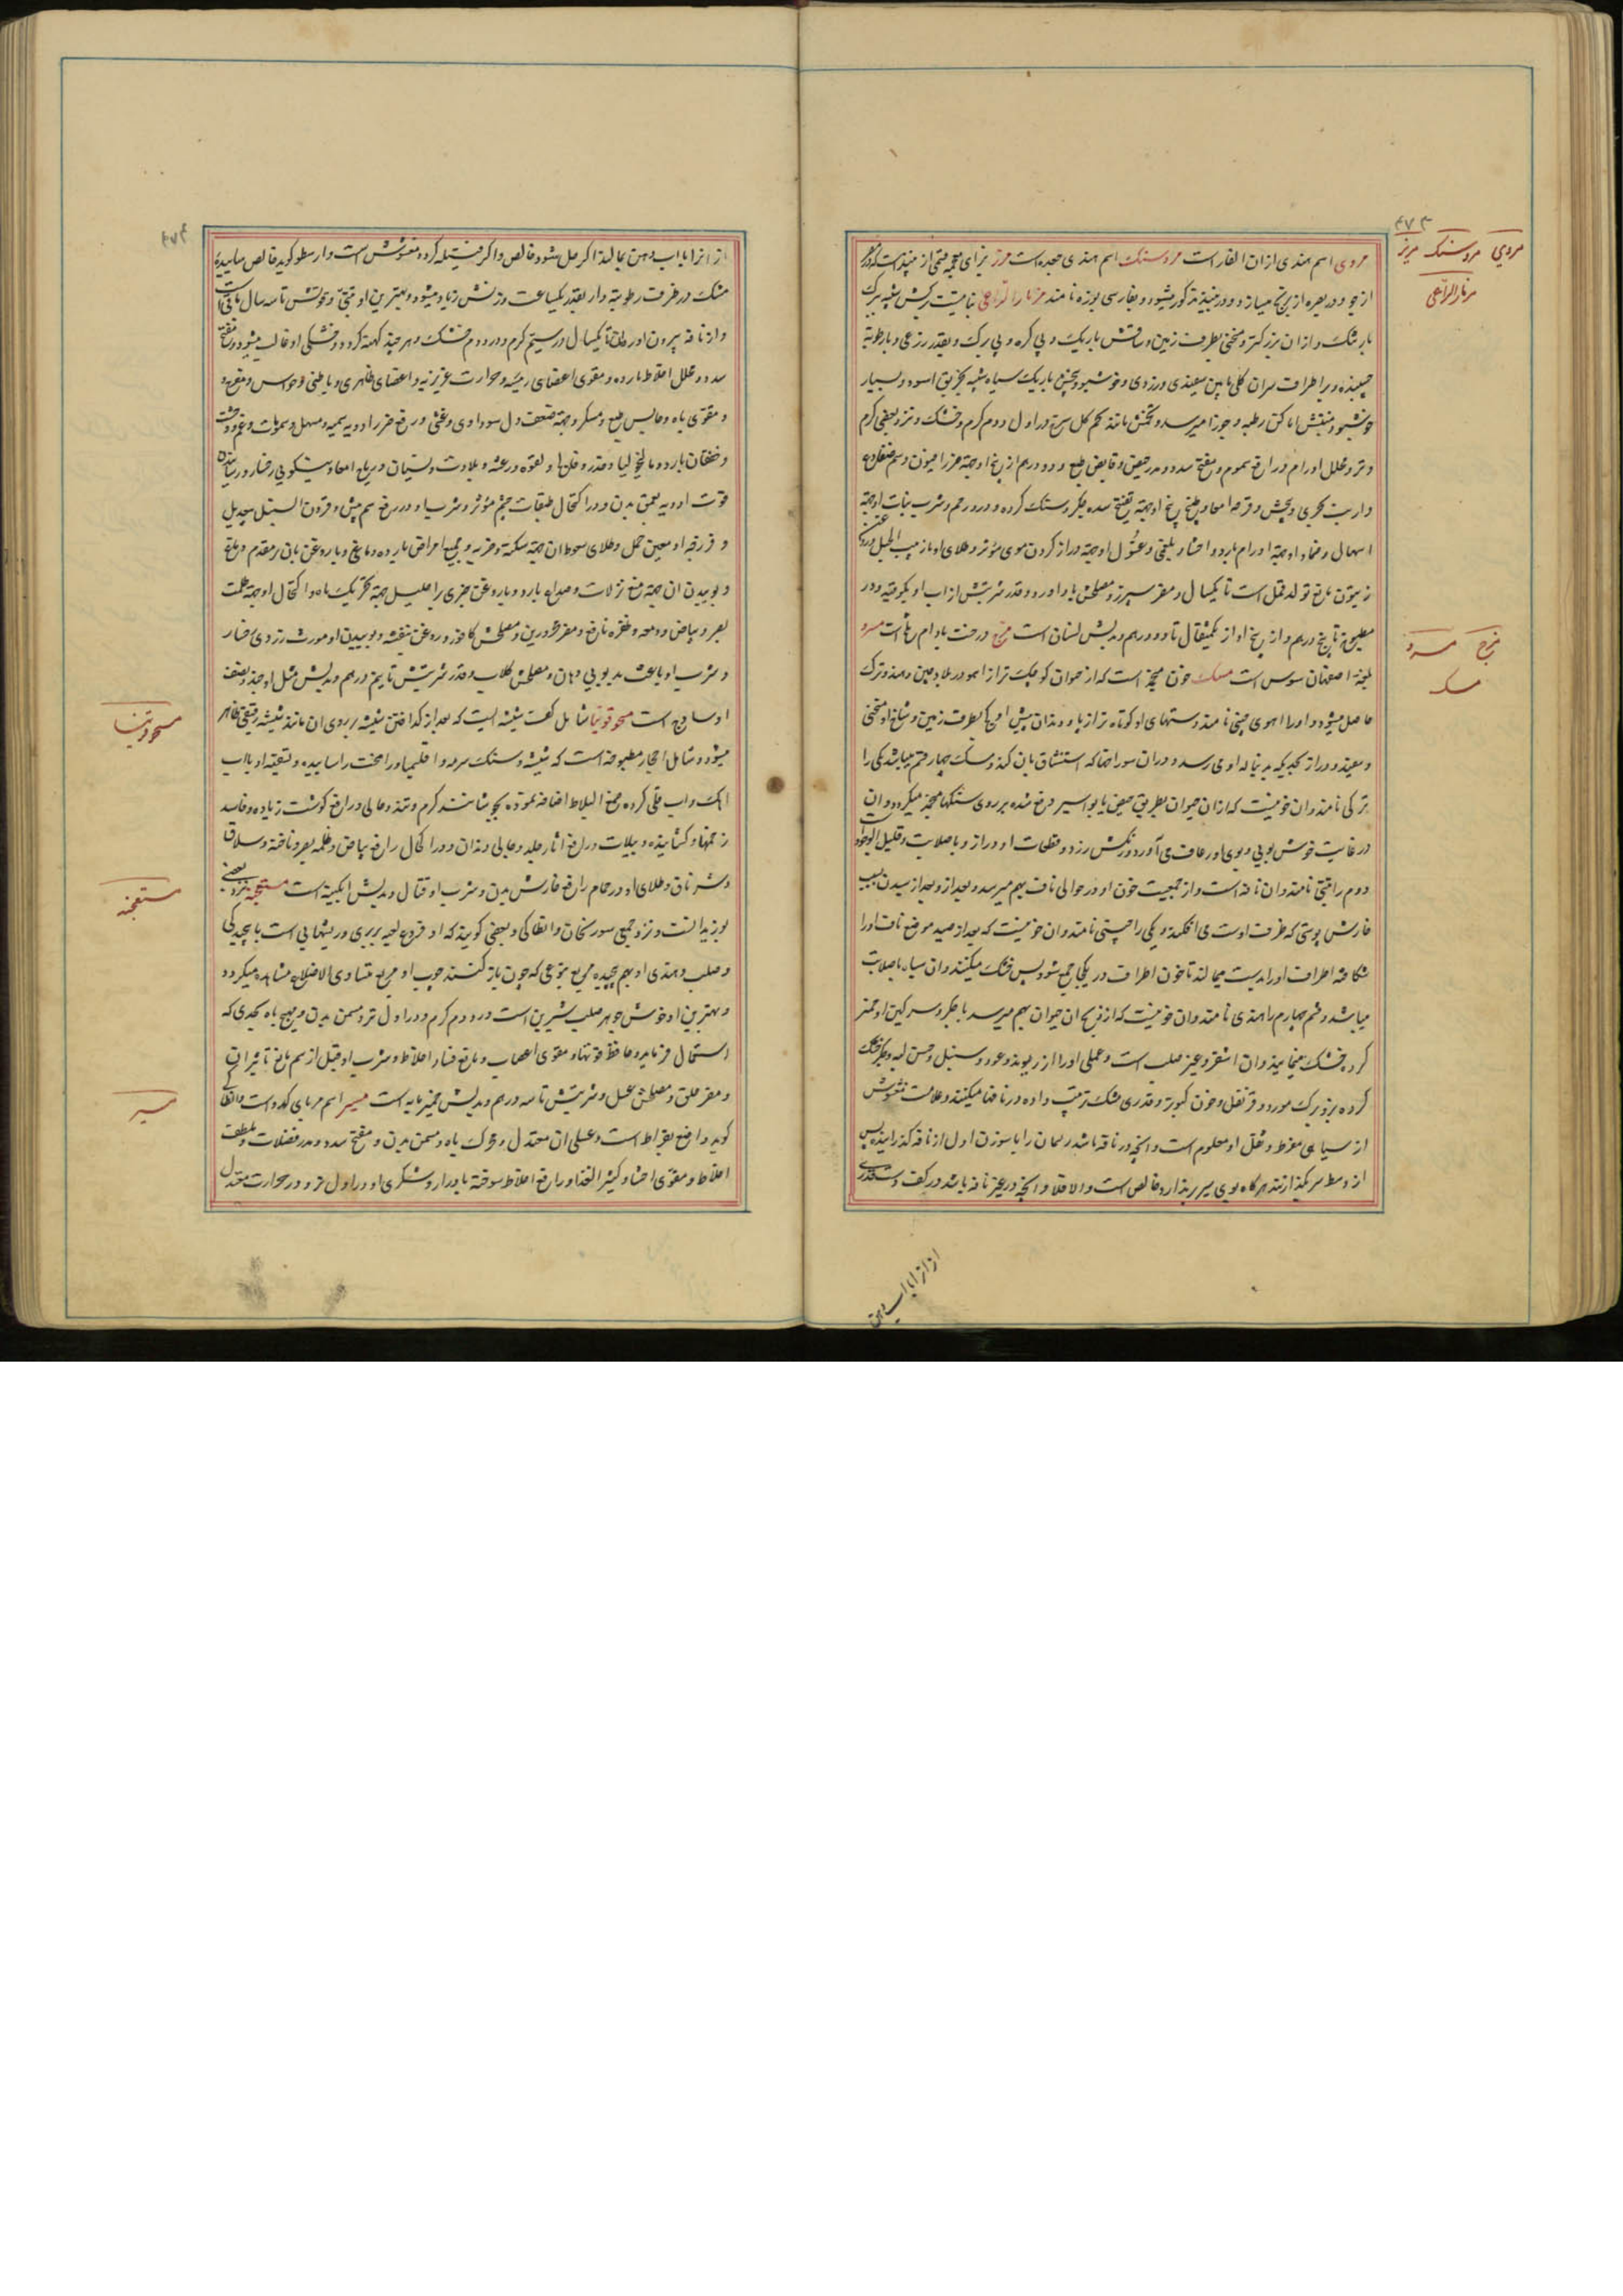 ۴۷۳
مردی مروسنک مزر
مزمارالراعی
مزج مسرو
مسک
مروی اسم هندی اذان الفار است مروسنک اسم هندی جعده است مزر بزای معجمه قسمی از نبیذ است که در
از جو و در بصره از برنج میسازند و در نبیذ مذکور میشود و بفارسی بوزه نامند مزمارالراعی نباتیست برکش شبیه ببرک
بارتنک و از ان بزرکتر و منحنی بطرف زمین و ساقش باریک و بی کره و بی برک و بقدر زرعی و با رطوبة
چسبنده و بر اطراف سران کلی مابین سفیدی و زردی و خوشبو و بیخش باریک سیاه شبیه بخربق اسود و بسیار
خوشبو و منبتش اماکن رطبه و جوزا میرسد و تخمش مانند تخم کل سرخ در اول دوم کرم و خشک و نزد بعضی کرم
و تر و محلل اورام و رافع سموم و مفتح سدد و مدر حیض و قابض طبع و دو درهم از بیخ او جهة ضرر افیون و سم ضفدع
و ارنب بحری و پیچش و قرحه امعا و طبخ بیخ او جهة تفتیح سده جکر و سنک کرده و درد رحم و شرب نبات او جهة
اسهال و ضماد او جهة اورام بارده و احشاء بلغمی و غسول او جهة دراز کردن موی مؤثر و طلای او با زبیب الجبل و روغن
زیتون مانع تولد قمل است تا یکسال و مضر سپرز و مصلحش باداورد و قدر شربتش از اب او یکوقیه و در
مطبوخ تا پنج درهم و از بیخ او از یکمثقال تا دو درهم و بدلش لسان است مزج درخت بادام تلخ است مسرو
بلغة اصفهان سوس است مسک خون منجمد است که از حیوان کوچک تر از اهو در بلاد چین و هند و ترک
حاصل میشود و اورا اهوی چینی نامند و دستهای او کوتاه تر از پا و دندان پیش او کج بطرف زمین و شاخ او منحنی
و سفید و دراز بحدیکه بدنباله او می رسد و در ان سوراخها که استنشاق بان کند و مسک چهار قسم میباشد یکی را
ترکی نامند و ان خونیست که از ان حیوان بطریق حیض یا بواسیر دفع شده بر روی سنکها منجمد میکردد و ان
در غایت خوش بویی و بوی او رعاف می آورد و رنکش زرد و قطعات او دراز و با صلابت و قلیل الوجود
دوم را تبتی نامند و ان نافه است و از جمعیت خون او در حوالی ناف بهم میرسد و بعد از رسیدن بسبب
خارش پوستی که ظرف اوست می افکند و یکی را چینی نامند و ان خونیست که بعد از صید موضع ناف اورا
شکافته اطراف اورا بدست میمالند تا خون اطراف در یکجا جمع شود پس خشک میکنند و ان سیاه با صلابت
میباشد و قسم چهارم را هندی نامند و ان خونیست که از ذبح ان حیوان بهم میرسد با جکر و سرکین او خمیر
کرده خشک مینمایند و ان اشقر و غیر صلب است و عملی اورا از ریوند و عود و سنبل و حسن لبه و جکر خشک
کرده بز و برک مورد و قرنفل و خون کبوتر و قدری مشک ترتیب داده در نافها میکنند و علامت مغشوش
از سیاهی مفرط و ثقل او معلوم است و انچه در نافه باشد ریسمان را با سوزن اول از نافه کذرانیده پس
از وسط سیر بکذرانند هرکاه بوی سیر بردارد خالص است والا فلا و انچه در غیر نافه باشد در کف دست قدری
از انرا با اب دهن
از انرا با اب دهن بمالند اکر حل شود خالص و اکر فتیله کردد مغشوش است و ارسطو کوید خالص ساییده
مشک در ظرف رطوبة دار بقدر یکساعت وزنش زیاد میشود و بهترین او تبتی و قوتش تا سه سال باقی است
و از نافه بیرون اورده تا یکسال در سیم کرم و در دوم خشک و هر چند کهنه کردد خشکی او غالب میشود و مفتح
سدد و محلل اخلاط بارده و مقوی اعضای رئیسه و حرارت غریزیه و اعضای ظاهری و باطنی و حواس و مفرح
و مقوی باه و حابس طبع و مسکر و جهة ضعف دل سوداوی و غشی و رفع ضرر ادویه سمیه و مسهل و سموم و غم و وحشت
و خفقان بارد و مالیخولیا و خدر و فلج و لقوه و رعشه و بلادت و نسیان و ریاح امعا و نیکویی رخسار و رساننده
قوت ادویه بعمق بدن و در اکتحال طبقات چشم مؤثر و شرب او در رفع سم بیش و قرون السنبل بیعدیل
و فرزجه او معین حمل و طلای سعوط ان جهة سکته و ضربه و جمیع امراض بارده دماغی و با روغن بان بر مقدم دماغ
و بوییدن ان جهة منع نزلات و صداع بارد و با روغن خیری بر احلیل جهة تحریک باه و اکتحال او جهة ظلمت
بصر و بیاض و دمعه و ظفره نافع و مضر محرورین و مصلحش کافور و روغن بنفشه و بوییدن او مورث زردی رخسار
و شرب او باعث بدبویی دهان و مصلحش کلاب و قدر شربتش تا نیم درهم و بدلش مثل او جند و نصف
او ساذج است مسحوقونیا شامل کفت شیشه ایست که بعد از کداختن شیشه بر روی ان مانند شیشه رقیقی ظاهر
میشود و شامل احجار مطبوخه است که شیشه و سنک سرمه و اقلیمیا و رامخت را ساییده و تسقیه او با اب
اهک و اب قلی کرده مخ البلاط اضافه نموده بجوشانند کرم و تند و جالی و رافع کوشت زیاده و فاسد
زخمها و کشاینده دبیلات و رافع اثار جلد و جالی دندان و در اکحال رافع بیاض و ظلمه بصر و ناخنه و سلاق
و شرناق و طلای او در حمام رافع خارش بدن و شرب او قتال و بدلش ابکینه است مستعجله نزد بعضی
بوزیدانست و نزد جمعی سورنجان و انطاکی و بعضی کویند که او فروع لحیه بربری و ریشهایی است باپیچیدکی
و صلب و هندی او بهم پیچیده مربع بنوعی که چون باز کنند چوب او مربع متساوی الاضلاع مشاهده میکردد
و بهترین او خوش جوهر صلب شیرین است در دوم کرم و در اول تر و مسمن بدن و مهیج باه بحدی که
استعمال فرمایند و حافظ قوتها و مقوی اعصاب و مانع فساد اخلاط و شرب او قبل از سم مانع تاثیر ان
و مضر حلق و مصلحش عسل و شربتش تا سه درهم و بدلش خمیرمایه است مسیر اسم مربای کدو است و انطاکی
کوید واضع بقراط است و عسلی ان معتدل و محرک باه و مسمن بدن و مفتح سدد و مدر فضلات و ملطف
اخلاط و مقوی احشا و کثیر الغذا و رافع اخلاط سوخته با ادرار و شکری او در اول تر و در حرارت معتدل
مسحوقونیا
مستعجله
مسیر